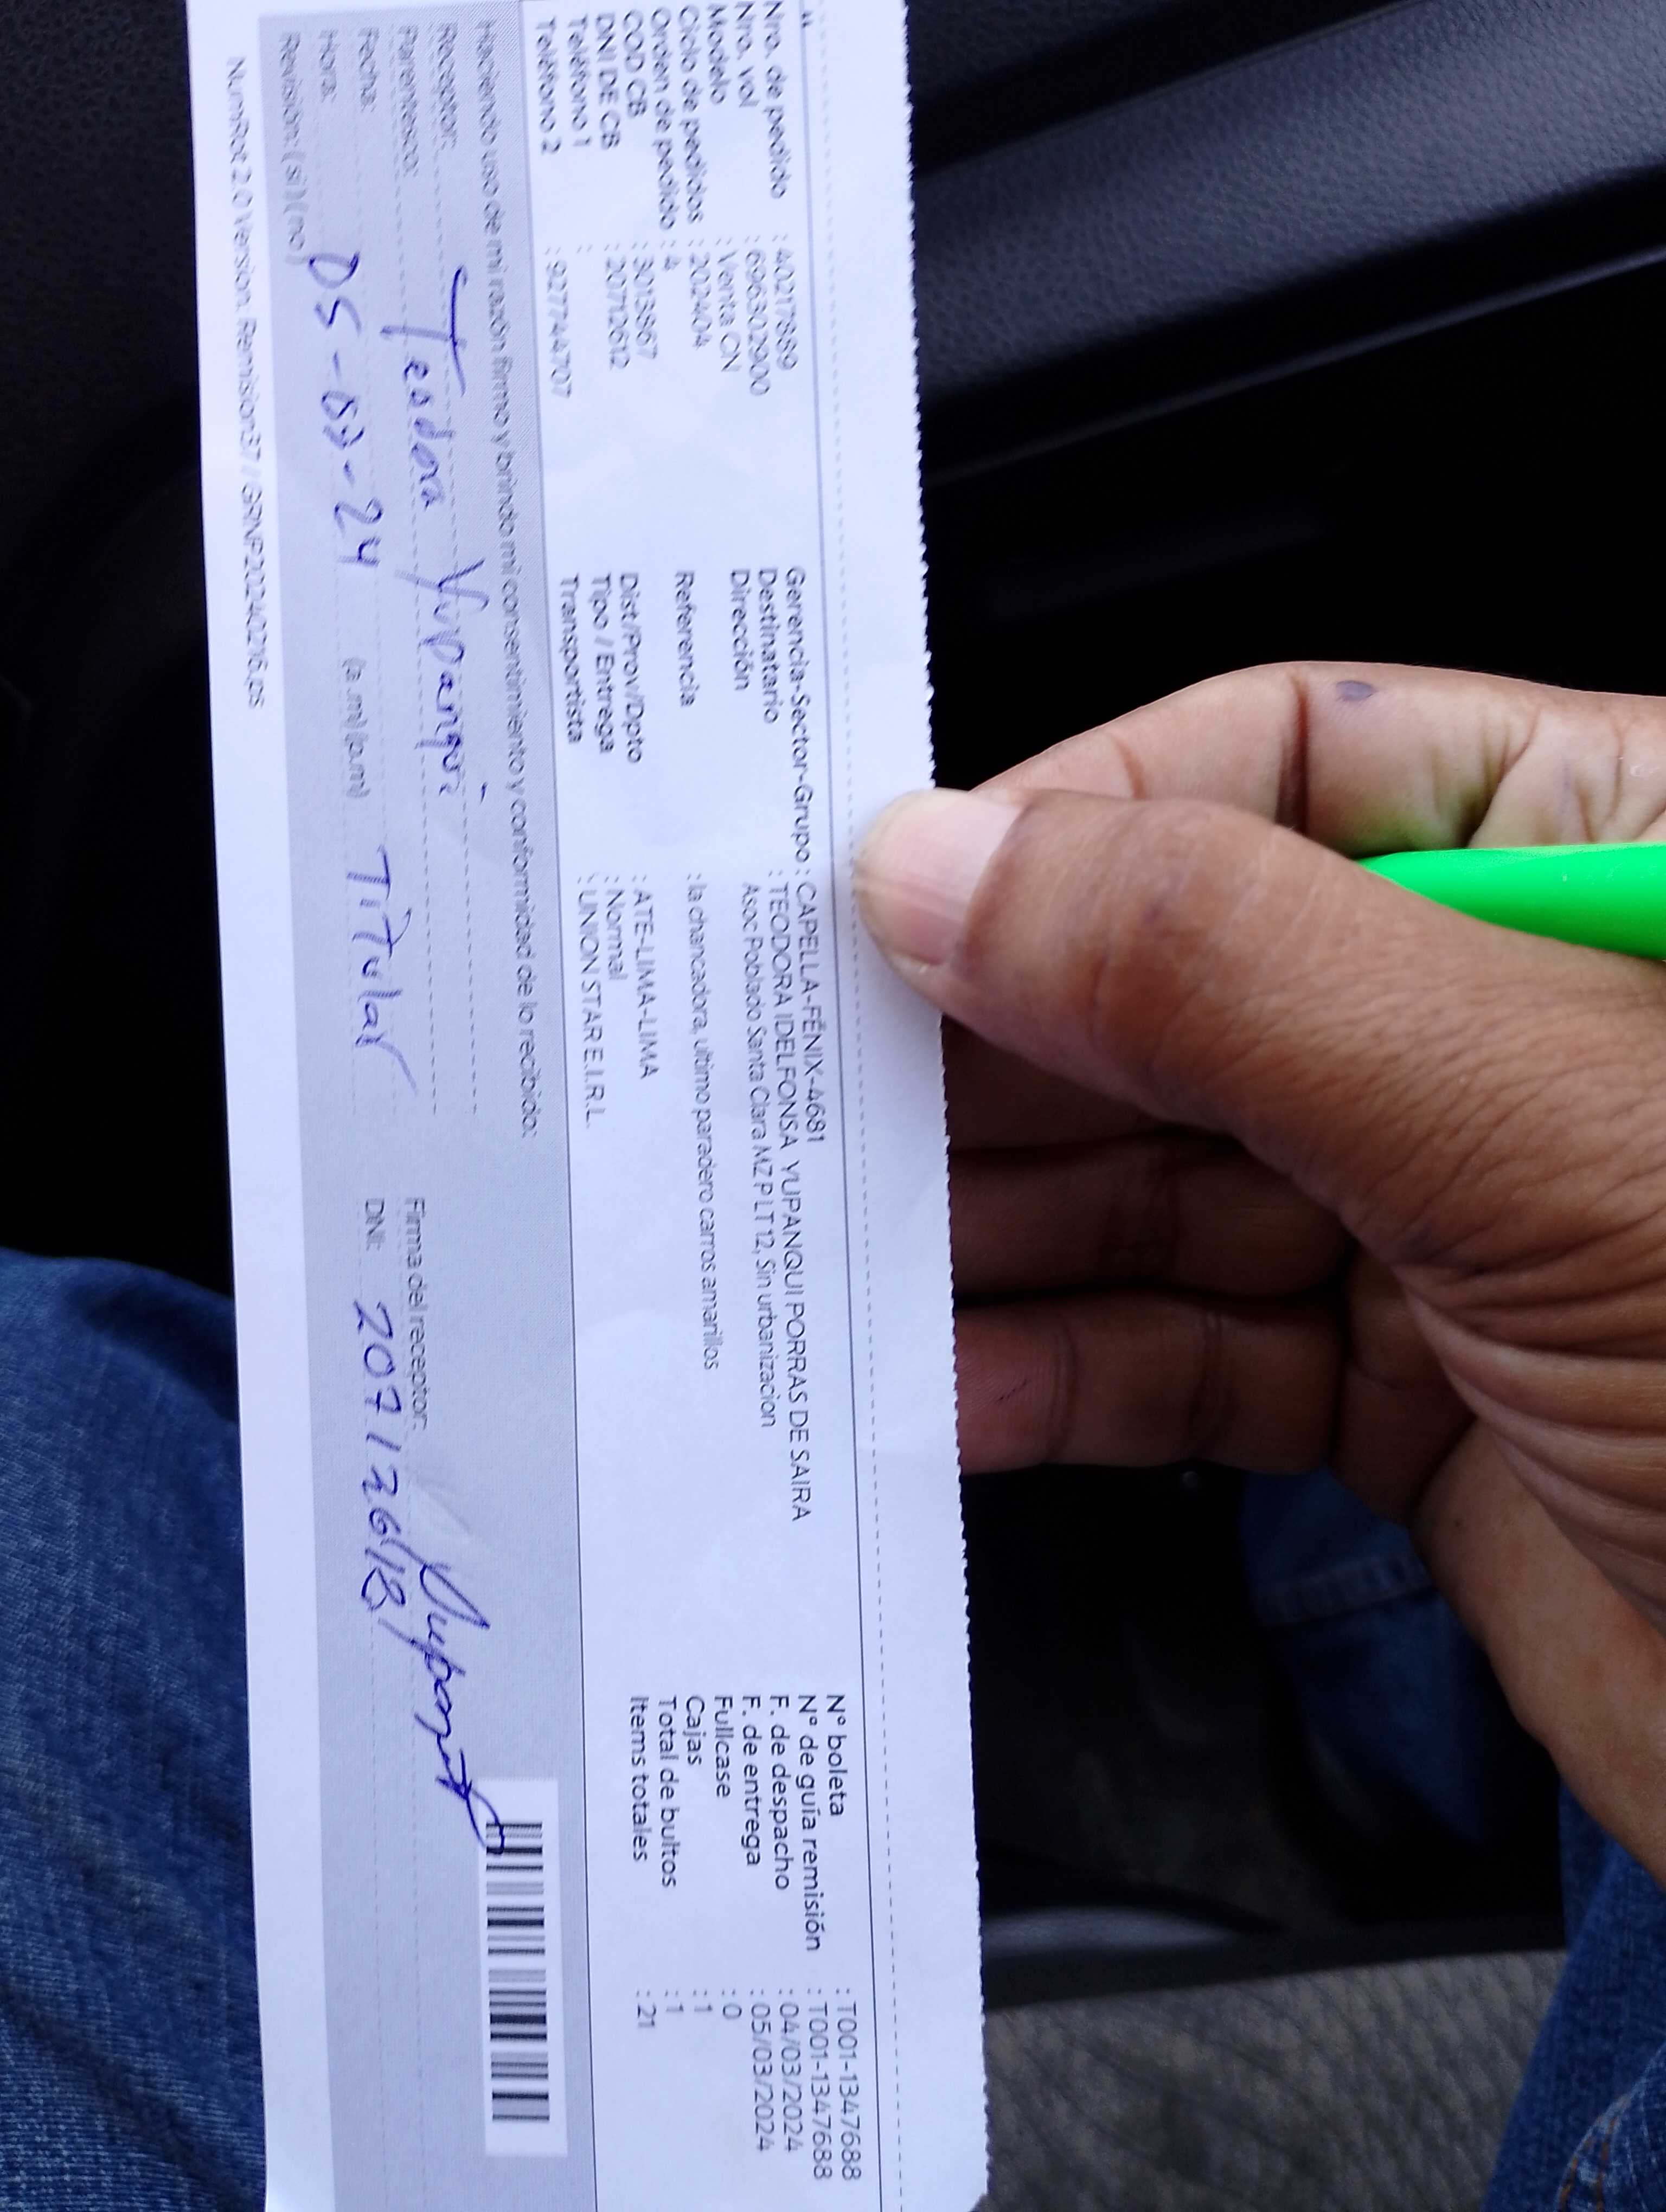 Nro. de pedido : 40217889
Nro. vol : 696302900
Modelo : Venta CN
Ciclo de pedidos : 202404
Orden de pedido : 4
COD CB : 3013867
DNI DE CB : 20712612
Teléfono 1 :
Teléfono 2 : 927744707
Gerencia-Sector-Grupo : CAPELLA-FÉNIX-4681
Destinatario : TEODORA IDELFONSA YUPANQUI PORRAS DE SAIRA
Dirección Asoc Poblado Santa Clara MZ P LT 12, Sin urbanizacion
Referencia : la chancadora, ultimo paradero carros amarillos
Dist/Prov/Dpto : ATE-LIMA-LIMA
Tipo / Entrega : Normal
Transportista : UNION STAR E.I.R.L.
N° boleta : T001-1347688
N° de guía remisión : T001-1347688
F. de despacho : 04/03/2024
F. de entrega : 05/03/2024
Fullcase : 0
Cajas : 1
Total de bultos : 1
Items totales : 21
Haciendo uso de mi razón firmo y brindo mi consentimiento y conformidad de lo recibido:
Receptor: Teodora Yupanqui
Parentesco: Titular
Fecha: 05-03-24
Hora: (a.m) (p.m)
Revisión: (si) (no)
Firma del receptor: Yupanqui
DNI: 20712618
NumRot 2.0 Version. Remision37 / GRNP20240216.ps